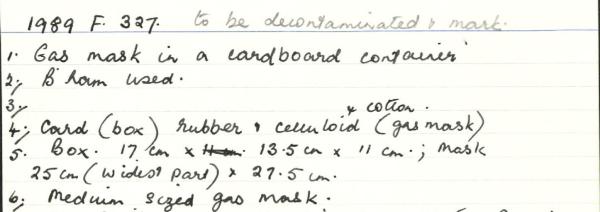 1989 F. 327. to be decontaminated & mask.
1. Gas mask in a cardboard container
2; B'ham used.
3;
& cotton.
4; Card (box) rubber & celluloid (gas mask)
5. Box. 17 cm x 13.5 cm x 11 cm.; mask
25 cm (widest part) x 27.5 cm.
6; Medium sized gas mask.